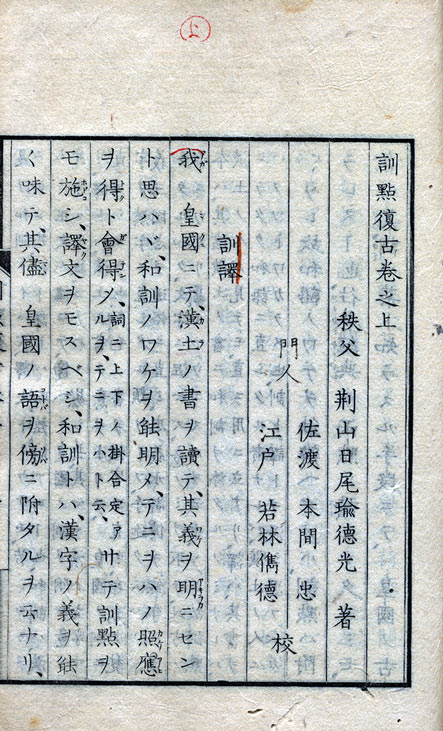 上
訓點復古卷之上
秩父 荆山日尾瑜德光 著
門人 佐渡 本間 忠
江戸 若林儁德 校
訓譯
我 皇國ニテ、漢土ノ書ヲ讀テ、其義ヲ明ニセン
ト思ハバ、和訓ノワケヲ能明メ、テニヲハノ照應
ヲ得ト會得メルヲ、詞ニ上下ノ掛合定アルヲ、テニヲ小ト云、サテ訓點ヲ
モ施シ、譯文ヲモスベシ、和訓トハ、漢字ノ義ヲ能
く味テ、其儘 皇國ノ語ヲ傍ニ附タルヲ云ナリ、